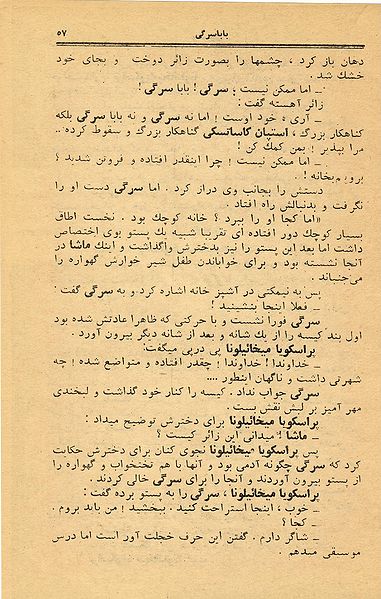 باباسرگی
۵۷
دهان باز کرد ، چشمها را بصورت زائر دوخت و بجای خود
خشك شد .
ـ اما ممکن نیست ؛ سرگی ! بابا سرگی !
زائر آهسته گفت :
ـ آری ه خود اوست ! اما نه سرگی و نه بابا سرگی بلکه
گناهکار بزرگ ، استپان کاساتسکی گناهکار بزرگ و سقوط کرده ..
مرا بپذیر ! بمن کمك کن !
ـ اما ممکن نیست ! چرا اینقدر افتاده و فروتن شدید ؟
برویم بخانه ! .
دستش را بجانب وی دراز کرد . اما سرگی دست او را
نگرفت و بدنبالش راه افتاد .
«اما کجا او را ببرد ؟ خانه کوچك بود . نخست اطاق
بسیار کوچك دور افتاده ای تقریبا شبیه بك پستو بوی اختصاص
داشت اما بعد این پستو را نیز بدخترش واگذاشت و اینك ماشا در
آنجا نشسته بود و برای خواباندن طفل شیر خوارش گهواره را
می‌جنباند .
پس به نیمکتی در آشپز خانه اشاره کرد و به سرگی گفت :
ـ فعلا اینجا بنشینید !
سرگی فورا نشست و با حرکتی که ظاهرا عادتش شده بود
اول بند کیسه را از یك شانه و بعد از شانه دیگر بیرون آورد .
پراسکویا میخائیلونا پی درپی میگفت:
ـ خداوندا ! خداوندا ! چقدر افتاده و متواضع شده ! چه
شهرتی داشت و ناگهان اینطور ....
سرگی جواب نداد . کیسه را کنار خود گذاشت و لبخندی
مهر آمیز بر لبش نقش بست .
پراسکویا میخائیلونا برای دخترش توضیح میداد :
ـ ماشا ! میدانی این زائر کیست ؟
پس پراسکویا میخائیلونا نجوی کنان برای دخترش حکایت
کرد که سرگی چگونه آدمی بود و آنها با هم تختخواب و گهواره را
از پستو بیرون آوردند و آنجا را برای سرگی خالی کردند .
پراسکویا میخائیلونا ، سرگی را به پستو برده گفت :
ـ خوب ، اینجا استراحت کنید . ببخشید ! من باید بروم .
ـ کجا ؟
ـ شاگرد دارم . گفتن این حرف خجلت آور است اما درس
موسیقی میدهم .